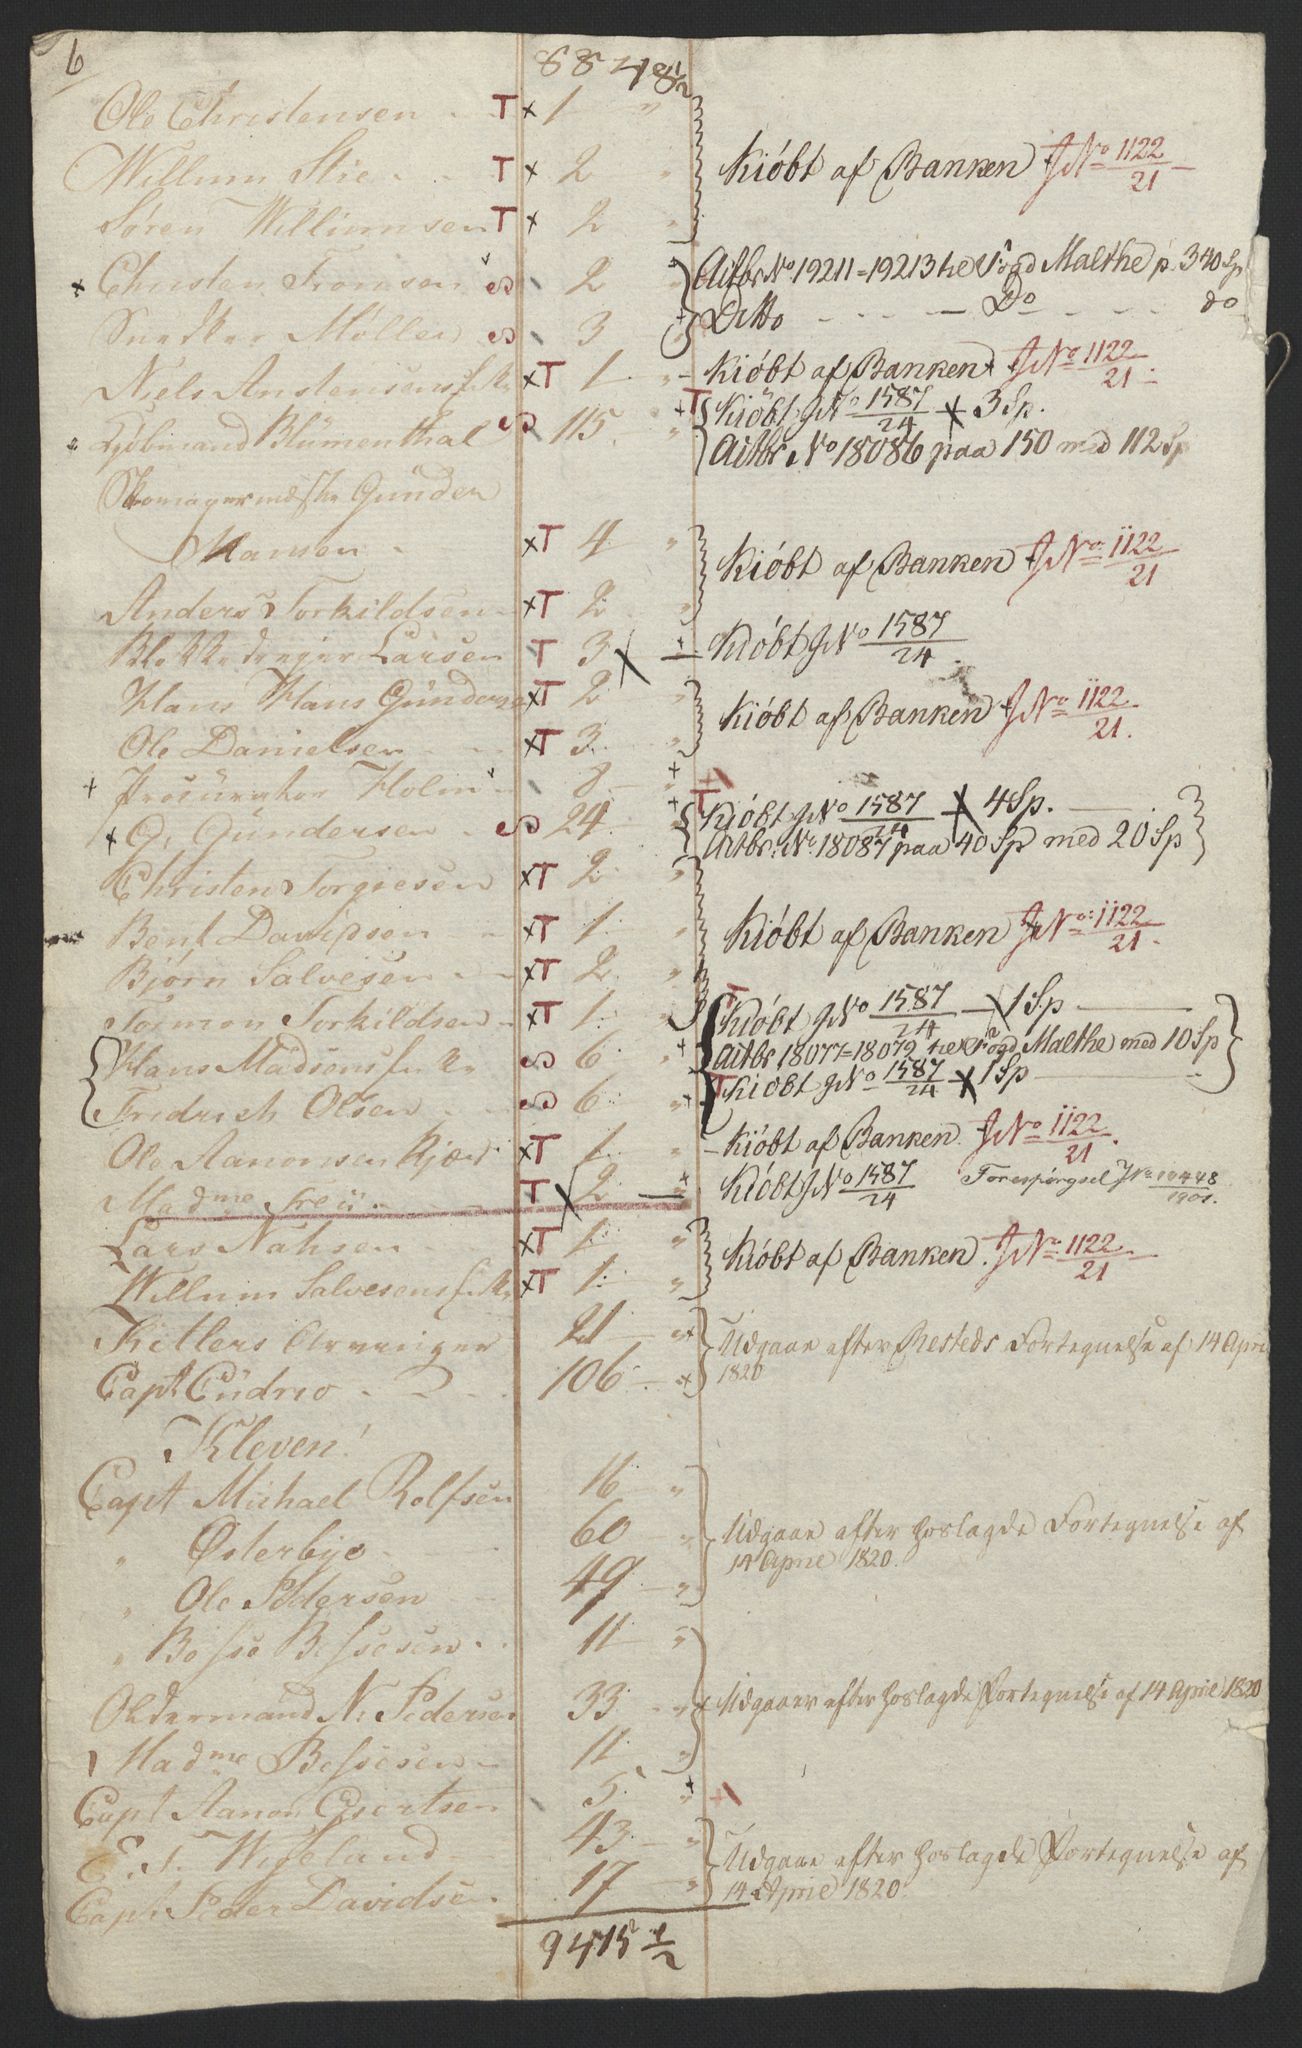 6
8848 1/2
Ole Christensen T x 1 "
Willum Stie T x 2 " Kióbt af Banken JNo 1122/21
Søren Willumsen T x 2 "
x Christen Tronsen 2 " Actbr No 19211=19213 til Fogd Malthe p. 340 Sp
Snedker Møller 3 Ditto - - - Do - - - do
Niels Anstensens xT 1 " Kióbt af Banken JNo 1122/21
Kjøbmand Blumenthal 115 " T Kióbt JNo 1587/24 x 3 Sp.
Actbr No 18086 paa 150 med 112 Sp
Skomagermester Günder
Hansen xT 4 " Kióbt af Banken JNo 1122/21
Anders Torkildsen xT 2 "
Blokkedreier Larsen T 3 Kióbt JNo 1587/24
Hans Hans Gündersen xT 2 " Kióbt af Banken JNo 1122/21
Ole Danielsen xT 3 "
+ Procurator Holm 8 +
x G. Gündersen 24 " T Kióbt JNo 1587/24 x 4 Sp.
Actbr. No. 18087 paa 40 Sp med 20 Sp
Christen Torgiesen xT 2 "
Bent Davidsen xT 1 " Kióbt af Banken JNo: 1122/21
Bjørn Salvesen xT 2 "
Tormon Torkildsen xT 1 " T Kióbt JNo 1587/24 x 1 Sp
Hans Madsens 6 " Actbr 18077=18079 til Fogd Malthe med 10 Sp
Fredrich Olsen 6 " T Kióbt JNo 1587/24 x 1 Sp
Ole Aanonsen Kjær xT 1 " Kióbt af Banken JNo 1122/21
Madme T x 2 " Kióbt JNo 1587/24 Forespörgsel JNo 10448/1901.
Lars Nahsen xT 1 " Kióbt af Banken JNo 1122/21
Willum Salvesens xT 1 "
Kitlers Arvinger 21 " Udgaar efter Resteds Fortegnelse af 14 April
Capt. Cüdrio 106 1820
Kleven!
Capt Michael Rolfsen 16 "
" Østerbye 60 " Udgaar efter hoslagde Fortegnelse af
14 April 1820.
" Ole Pedersen 49 "
" Bosse Bessesen 11 "
Oldermand N. Pedersen 33 " Udgaaer efter hoslagde Fortegnelse af 14 April 1820
Madme Bessesen 11 "
Capt Aanon Evertsen 5 " +
E. T. Wigeland 43 " Udgaar efter hoslagde Fortegnelse af
Capt. Peder Davidsen 17 " 14 April 1820.
9475 1/2